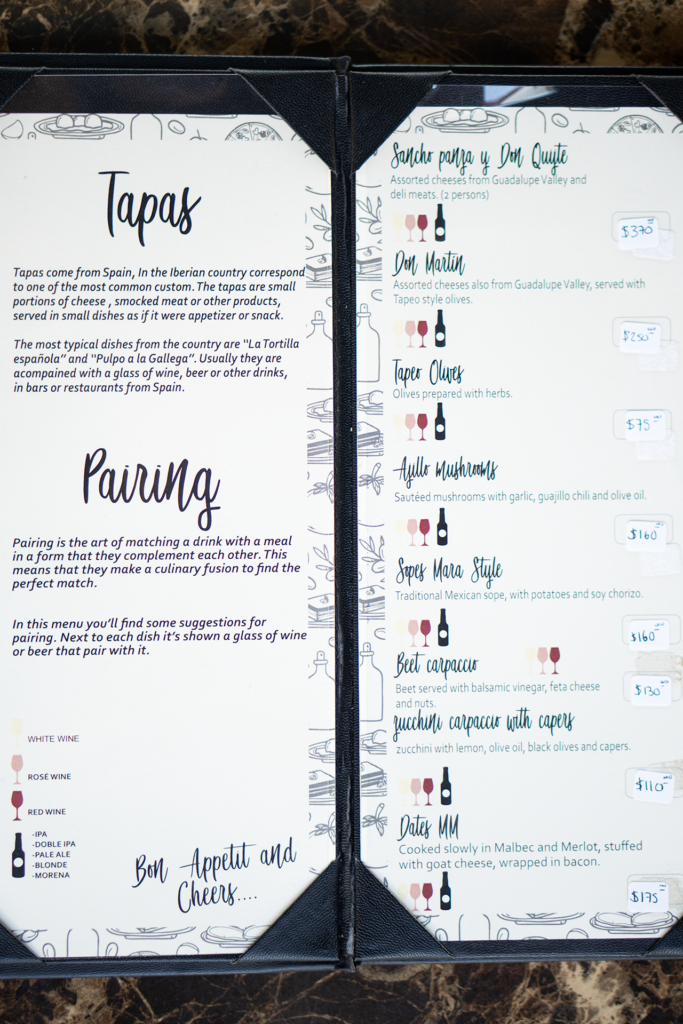 Tapas
Tapas come from Spain, In the Iberian country correspond
to one of the most common custom. The tapas are small
portions of cheese , smocked meat or other products,
served in small dishes as if it were appetizer or snack.
The most typical dishes from the country are "La Tortilla
española" and "Pulpo a la Gallega". Usually they are
acompained with a glass of wine, beer or other drinks,
in bars or restaurants from Spain.
Pairing
Pairing is the art of matching a drink with a meal
in a form that they complement each other. This
means that they make a culinary fusion to find the
perfect match.
In this menu you'll find some suggestions for
pairing. Next to each dish it's shown a glass of wine
or beer that pair with it.
WHITE WINE
ROSÉ WINE
RED WINE
-IPA
-DOBLE IPA
-PALE ALE
-BLONDE
-MORENA
Bon Appetit and
Cheers....
Sancho panza y Don Quijte
Assorted cheeses from Guadalupe Valley and
deli meats. (2 persons)
$370
Don Martin
Assorted cheeses also from Guadalupe Valley, served with
Tapeo style olives.
$250
Tapeo Olives
Olives prepared with herbs.
$75
Ajillo mushrooms
Sautéed mushrooms with garlic, guajillo chili and olive oil.
$160
Sopes Mara Style
Traditional Mexican sope, with potatoes and soy chorizo.
$160
Beet carpaccio
Beet served with balsamic vinegar, feta cheese
and nuts.
$130
zucchini carpaccio with capers
zucchini with lemon, olive oil, black olives and capers.
$110
Dates MM
Cooked slowly in Malbec and Merlot, stuffed
with goat cheese, wrapped in bacon.
$175